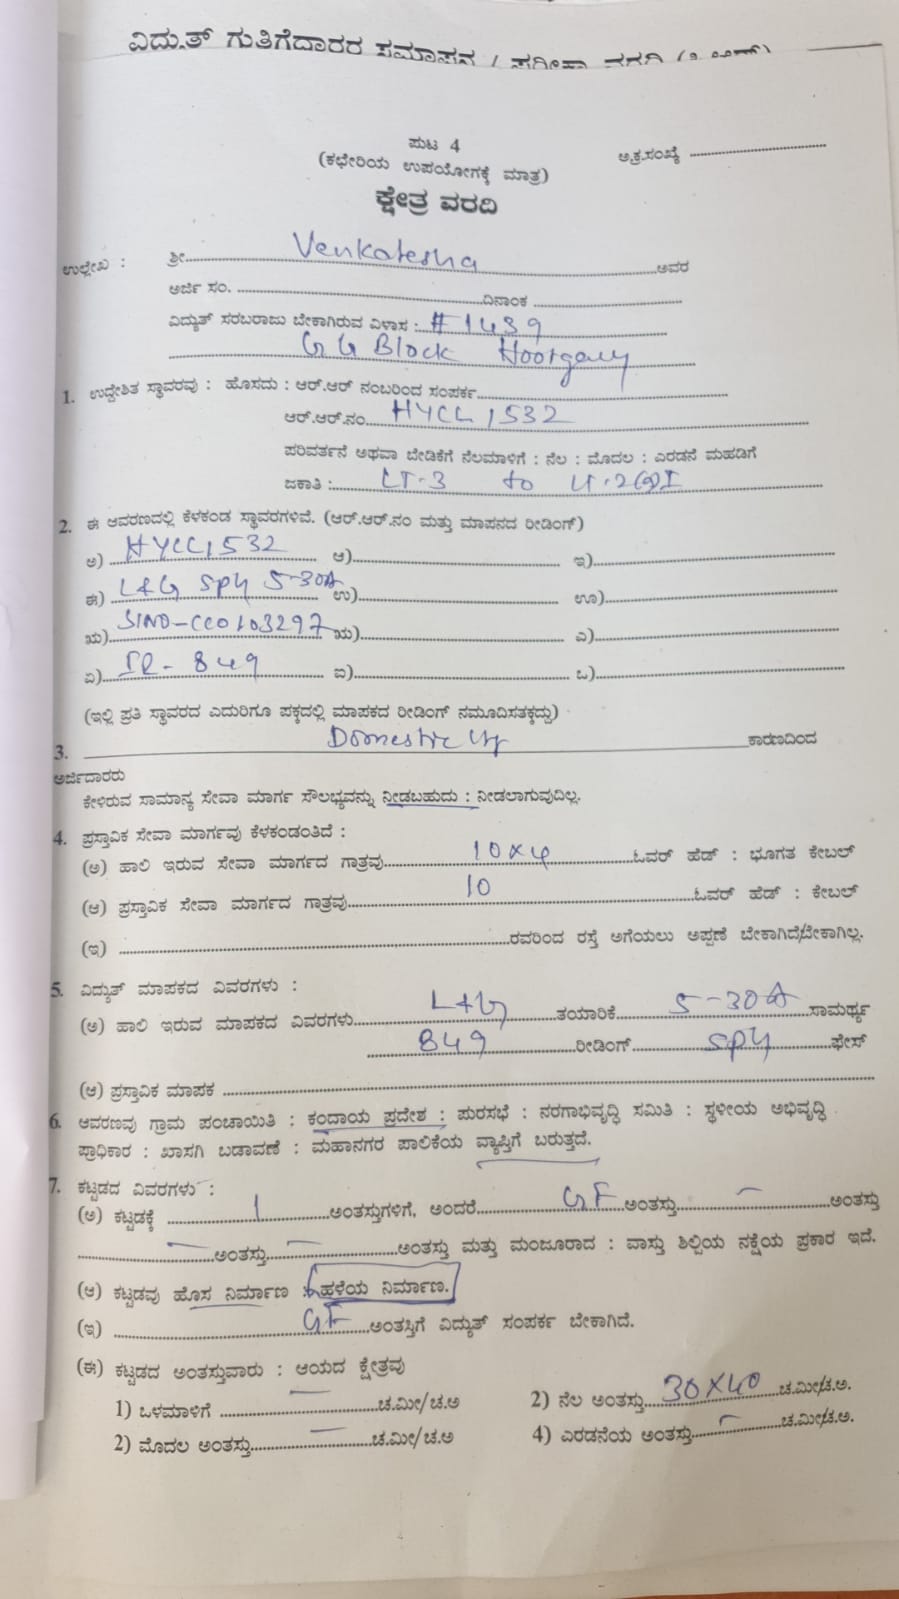 ವಿದ್ಯುತ್ ಗುತಿಗೆದಾರರ ಸಮಾಪನ /
ಪುಟ 4
(ಕಛೇರಿಯ ಉಪಯೋಗಕ್ಕೆ ಮಾತ್ರ)
ಅ.ಕ್ರ.ಸಂಖ್ಯೆ
ಕ್ಷೇತ್ರ ವರದಿ
ಉಲ್ಲೇಖ : ಶ್ರೀ Venkatesha ಅವರ
ಅರ್ಜಿ ಸಂ. ದಿನಾಂಕ
ವಿದ್ಯುತ್ ಸರಬರಾಜು ಬೇಕಾಗಿರುವ ವಿಳಾಸ : # 1439
G G Block
1. ಉದ್ದೇಶಿತ ಸ್ಥಾವರವು : ಹೊಸದು : ಆರ್.ಆರ್ ನಂಬರಿಂದ ಸಂಪರ್ಕ
ಆರ್.ಆರ್.ನಂ. 1532
ಪರಿವರ್ತನೆ ಅಥವಾ ಬೇಡಿಕೆಗೆ ನೆಲಮಾಳಿಗೆ : ನೆಲ : ಮೊದಲ : ಎರಡನೆ ಮಹಡಿಗೆ
ಜಕಾತಿ : LT-3 to
2. ಈ ಆವರಣದಲ್ಲಿ ಕೆಳಕಂಡ ಸ್ಥಾವರಗಳಿವೆ. (ಆರ್.ಆರ್.ನಂ ಮತ್ತು ಮಾಪನದ ರೀಡಿಂಗ್)
ಅ) 1532 ಆ) ಇ)
ಈ) L&G SPH 5-30A ಉ) ಊ)
ಋ) SlNO-CC0103297 ಋ) ಎ)
ಏ) IR - 849 ಐ) ಒ)
(ಇಲ್ಲಿ ಪ್ರತಿ ಸ್ಥಾವರದ ಎದುರಿಗೂ ಪಕ್ಕದಲ್ಲಿ ಮಾಪಕದ ರೀಡಿಂಗ್ ನಮೂದಿಸತಕ್ಕದ್ದು)
3. Domestic ಕಾರಣದಿಂದ
ಅರ್ಜಿದಾರರು
ಕೇಳಿರುವ ಸಾಮಾನ್ಯ ಸೇವಾ ಮಾರ್ಗ ಸೌಲಭ್ಯವನ್ನು ನೀಡಬಹುದು : ನೀಡಲಾಗುವುದಿಲ್ಲ.
4. ಪ್ರಸ್ತಾವಿಕ ಸೇವಾ ಮಾರ್ಗವು ಕೆಳಕಂಡಂತಿದೆ :
(ಅ) ಹಾಲಿ ಇರುವ ಸೇವಾ ಮಾರ್ಗದ ಗಾತ್ರವು 10×4 ಓವರ್ ಹೆಡ್ : ಭೂಗತ ಕೇಬಲ್
(ಆ) ಪ್ರಸ್ತಾವಿಕ ಸೇವಾ ಮಾರ್ಗದ ಗಾತ್ರವು 10 ಓವರ್ ಹೆಡ್ : ಕೇಬಲ್
(ಇ) ರವರಿಂದ ರಸ್ತೆ ಅಗೆಯಲು ಅಪ್ಪಣೆ ಬೇಕಾಗಿದೆ/ಬೇಕಾಗಿಲ್ಲ.
5. ವಿದ್ಯುತ್ ಮಾಪಕದ ವಿವರಗಳು :
(ಅ) ಹಾಲಿ ಇರುವ ಮಾಪಕದ ವಿವರಗಳು L&G ತಯಾರಿಕೆ 5-30A ಸಾಮರ್ಥ್ಯ
849 ರೀಡಿಂಗ್ SPH ಫೇಸ್
(ಆ) ಪ್ರಸ್ತಾವಿಕ ಮಾಪಕ
6. ಆವರಣವು ಗ್ರಾಮ ಪಂಚಾಯಿತಿ : ಕಂದಾಯ ಪ್ರದೇಶ : ಪುರಸಭೆ : ನರಗಾಭಿವೃದ್ಧಿ ಸಮಿತಿ : ಸ್ಥಳೀಯ ಅಭಿವೃದ್ಧಿ
ಪ್ರಾಧಿಕಾರ : ಖಾಸಗಿ ಬಡಾವಣೆ : ಮಹಾನಗರ ಪಾಲಿಕೆಯ ವ್ಯಾಪ್ತಿಗೆ ಬರುತ್ತದೆ.
7. ಕಟ್ಟಡದ ವಿವರಗಳು :
(ಅ) ಕಟ್ಟಡಕ್ಕೆ 1 ಅಂತಸ್ತುಗಳಿಗೆ, ಅಂದರೆ GF ಅಂತಸ್ತು - ಅಂತಸ್ತು
- ಅಂತಸ್ತು - ಅಂತಸ್ತು ಮತ್ತು ಮಂಜೂರಾದ : ವಾಸ್ತು ಶಿಲ್ಪಿಯ ನಕ್ಷೆಯ ಪ್ರಕಾರ ಇದೆ.
(ಆ) ಕಟ್ಟಡವು ಹೊಸ ನಿರ್ಮಾಣ : ಹಳೆಯ ನಿರ್ಮಾಣ.
(ಇ) GF ಅಂತಸ್ತಿಗೆ ವಿದ್ಯುತ್ ಸಂಪರ್ಕ ಬೇಕಾಗಿದೆ.
(ಈ) ಕಟ್ಟಡದ ಅಂತಸ್ತುವಾರು : ಆಯದ ಕ್ಷೇತ್ರವು
1) ಒಳಮಾಳಿಗೆ - ಚ.ಮೀ/ಚ.ಅ 2) ನೆಲ ಅಂತಸ್ತು 30×40 ಚ.ಮೀ/ಚ.ಅ.
2) ಮೊದಲ ಅಂತಸ್ತು - ಚ.ಮೀ/ಚ.ಅ 4) ಎರಡನೆಯ ಅಂತಸ್ತು - ಚ.ಮೀ/ಚ.ಅ.